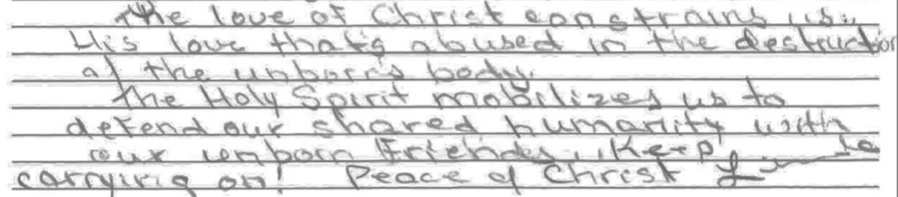 The love of Christ constrains us..
His love that's abused in the destruction
of the unborn's body.
The Holy Spirit mobilizes us to
defend our shared humanity with
our unborn friends. Keep
carrying on! Peace of Christ